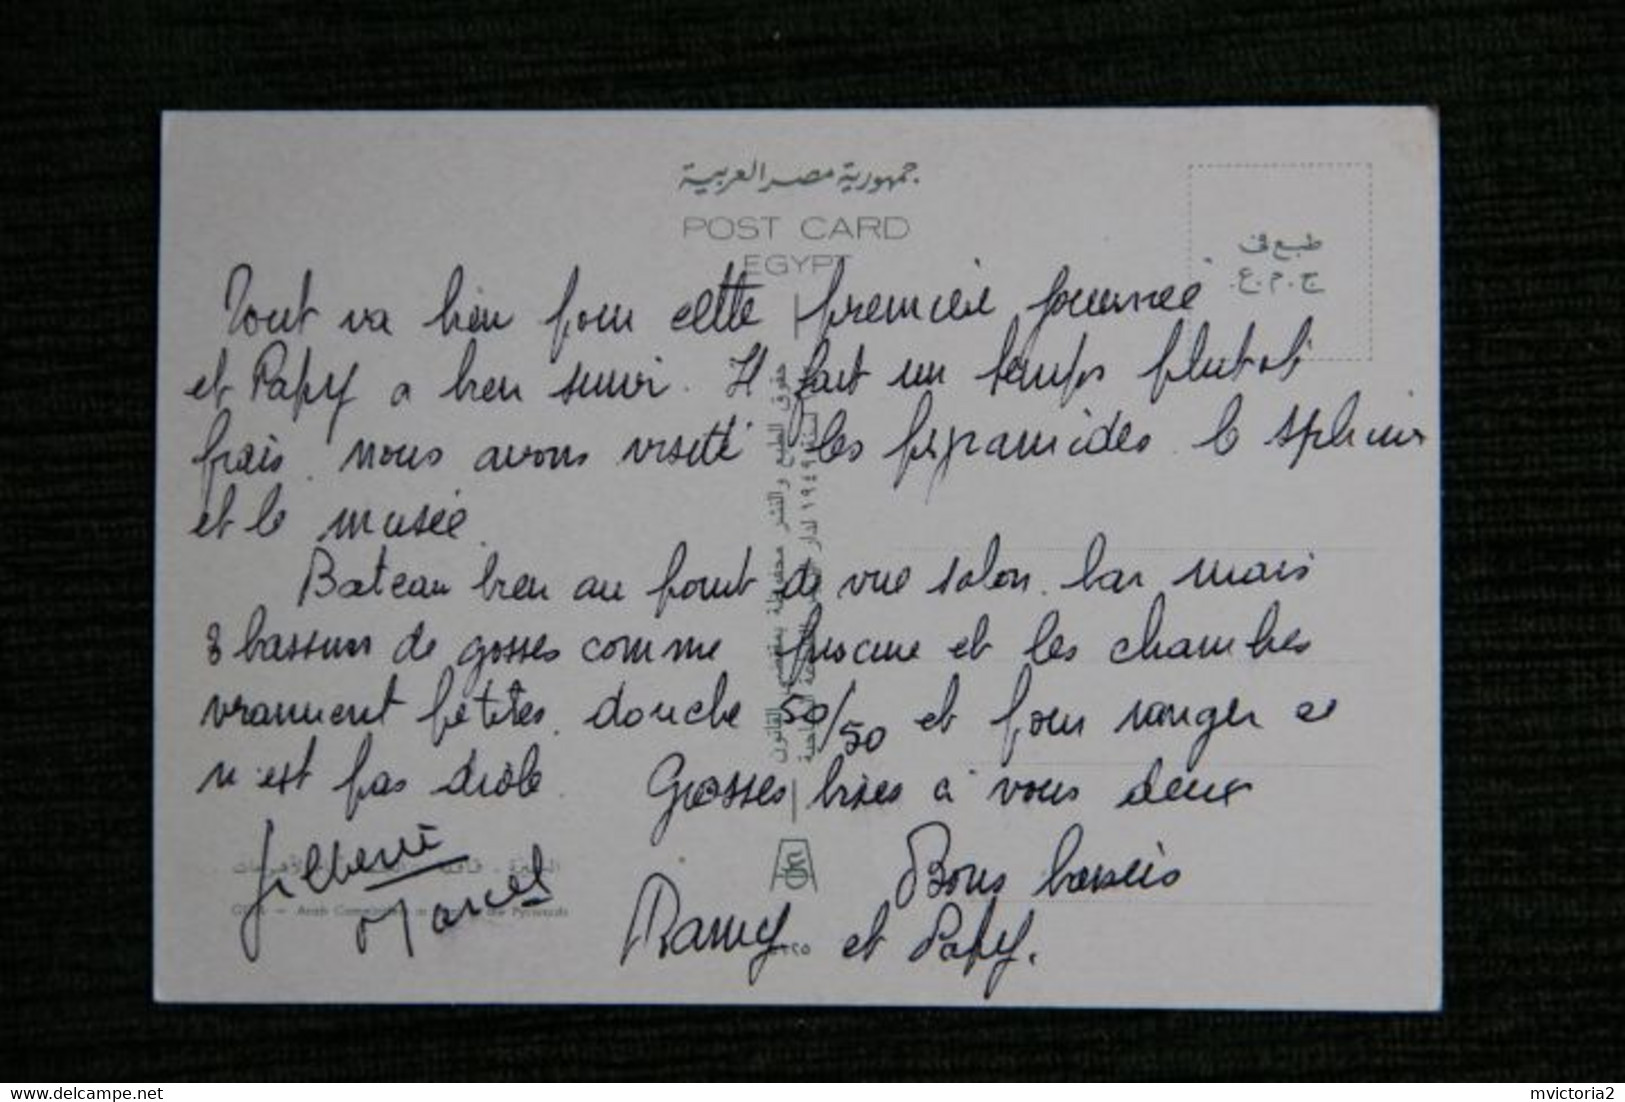 جمهورية مصر العربية
POST CARD
EGYPT
طبع فى
ج.م.ع.
Tout va bien pour cette première journée
et Papy a bien suivi. Il fait un temps plutot
frais. nous avons visité les pyramides. le sphinx
et le musée.
Bateau bien au point de vue salon. bar mais
bassins de gosses comme piscine et les chambres
vraiment petites. douche 50/50 et pour ranger ce
n'est pas drôle. Grosses bises à vous deux
Gilberte
Marcel
Bons baisers
Mamy et Papy.
حقوق الطبع والنشر محفوظة بمقتضى القانون
GIZA - Arab
Pyramids
mvictoria2